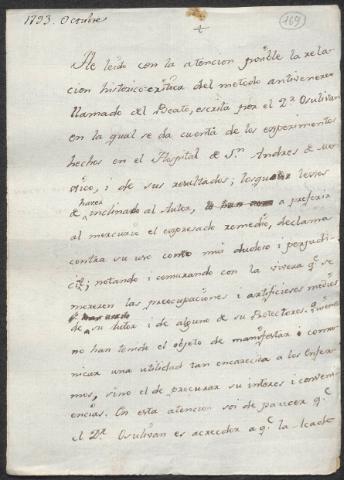 1793. Octubre
169
He leido con la atencion posible la rela-
cion historico-critica del metodo antivenereo
llamado del Beato, escrita por el Dr. Osulivan
en la qual se da cuenta de los experimentos
hechos en el Hospital de Sn. Andres de Me-
xico, i de sus resultados; los quales lexos
de haver inclinado al Autor, a preferir
al mercurio el expresado remedio, declama
contra su uso como mui dudoso i perjudi-
cial; notando i censurando con la viveza qe. se
merecen las preocupaciones i artificiosos
de su Autor i de alguno de sus Protectores, quienes
no han tenido el objeto de manifestar i comu-
nicar una utilidad tan encarecida a los Enfer-
mos, sino el de procurar su interes i conveni-
encias. En esta atencion soi de parecer qe.
el Dr. Osulivan es acreedor a qe. la Acade-